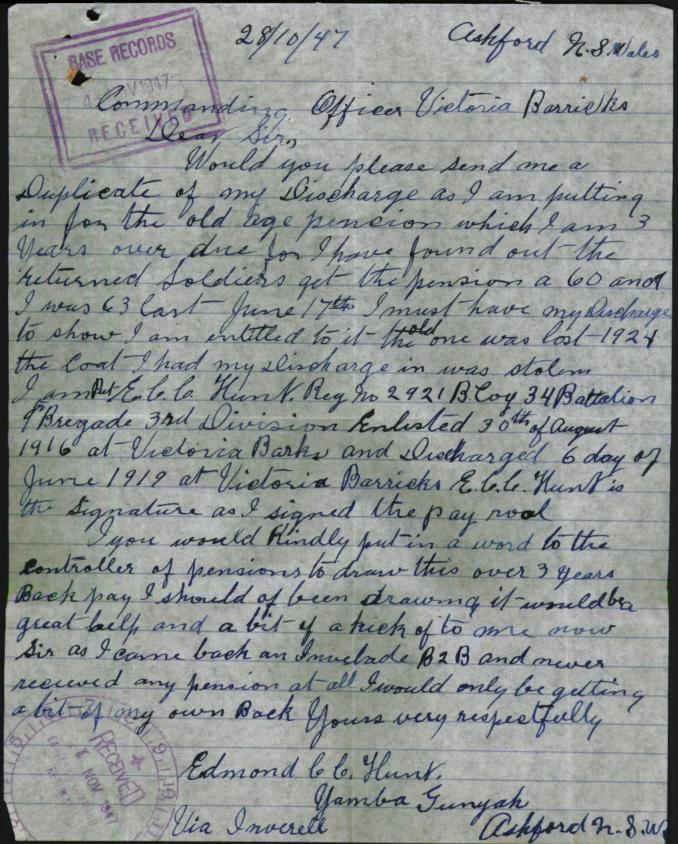 28/10/47 Ashford N.S.Wales
BASE RECORDS
NOV 1947
RECEIVED
Commanding Officer Victoria Barricks
Dear Sir,
Would you please send me a
Duplicate of my Discharge as I am putting
in for the old age pension which I am 3
Years over due for I have found out the
returned Soldiers get the pension a 60 and
I was 63 last June 17th I must have my Discharge
to show I am entitled to it the old one was lost 1924
the Coat I had my Discharge in was stolen
I am Pvt E.C.C. Hunt. Reg No 2921 B Coy 34 Battalion
9th Bregade 3rd Division Enlisted 30th of August
1916 at Victoria Barks and Discharged 6 day of
June 1919 at Victoria Barricks E.C.C. Hunt is
the signature as I signed the pay rool
I you would Kindly put in a word to the
controller of pensions to draw this over 3 years
Back pay I should of been drawing it would be a
great help and a bit of a kick of to me now
Sir as I came back an Invelade B2B and never
recieved any pension at all I would only be getting
a bit of my own Back Yours very respetfully
RECEIVED
NOV 1947
Edmond C.C. Hunt.
Yamba Gunyah
Via Inverell Ashford N.S.W.